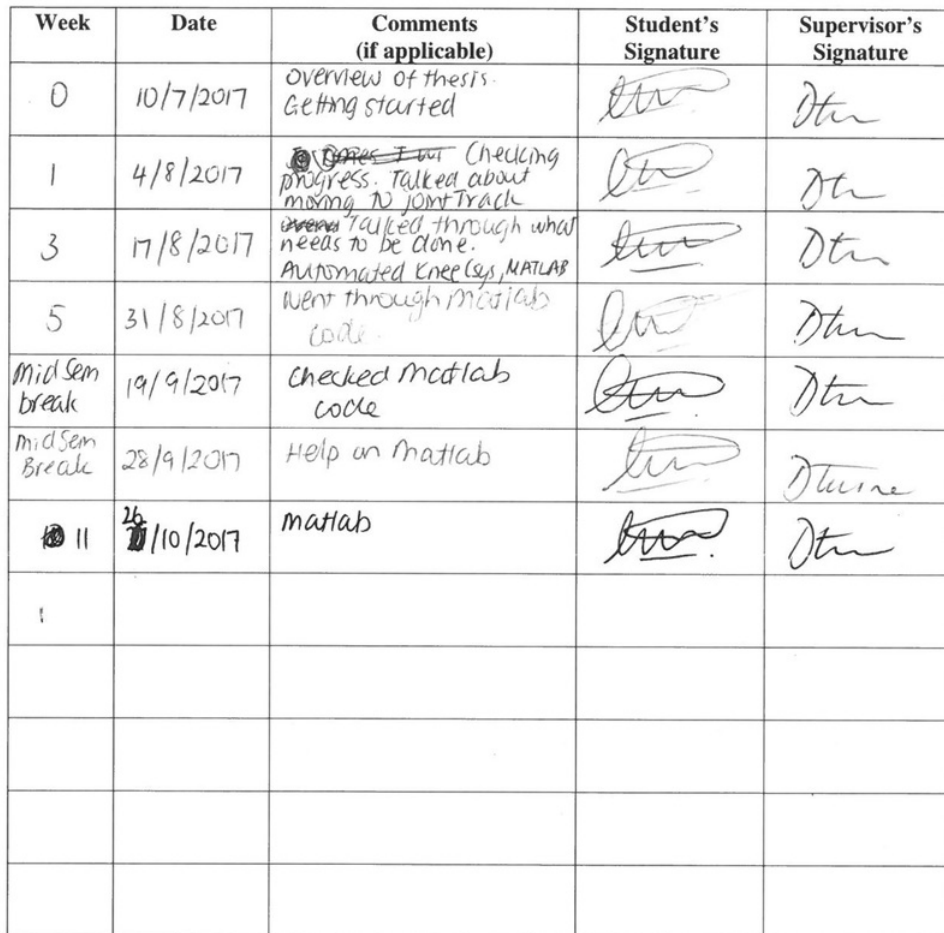 Week Date Comments (if applicable) Student's Signature Supervisor's Signature
0 10/7/2017 Overview of thesis.
Getting started
1 4/8/2017 Checking
progress. Talked about
moving to JointTrack
3 17/8/2017 Talked through what
needs to be done.
Automated Knee (sys, MATLAB
5 31/8/2017 Went through Matlab
code.
Mid Sem
break 19/9/2017 Checked Matlab
code
Mid Sem
Break 28/9/2017 Help on Matlab
11 26/10/2017 Matlab